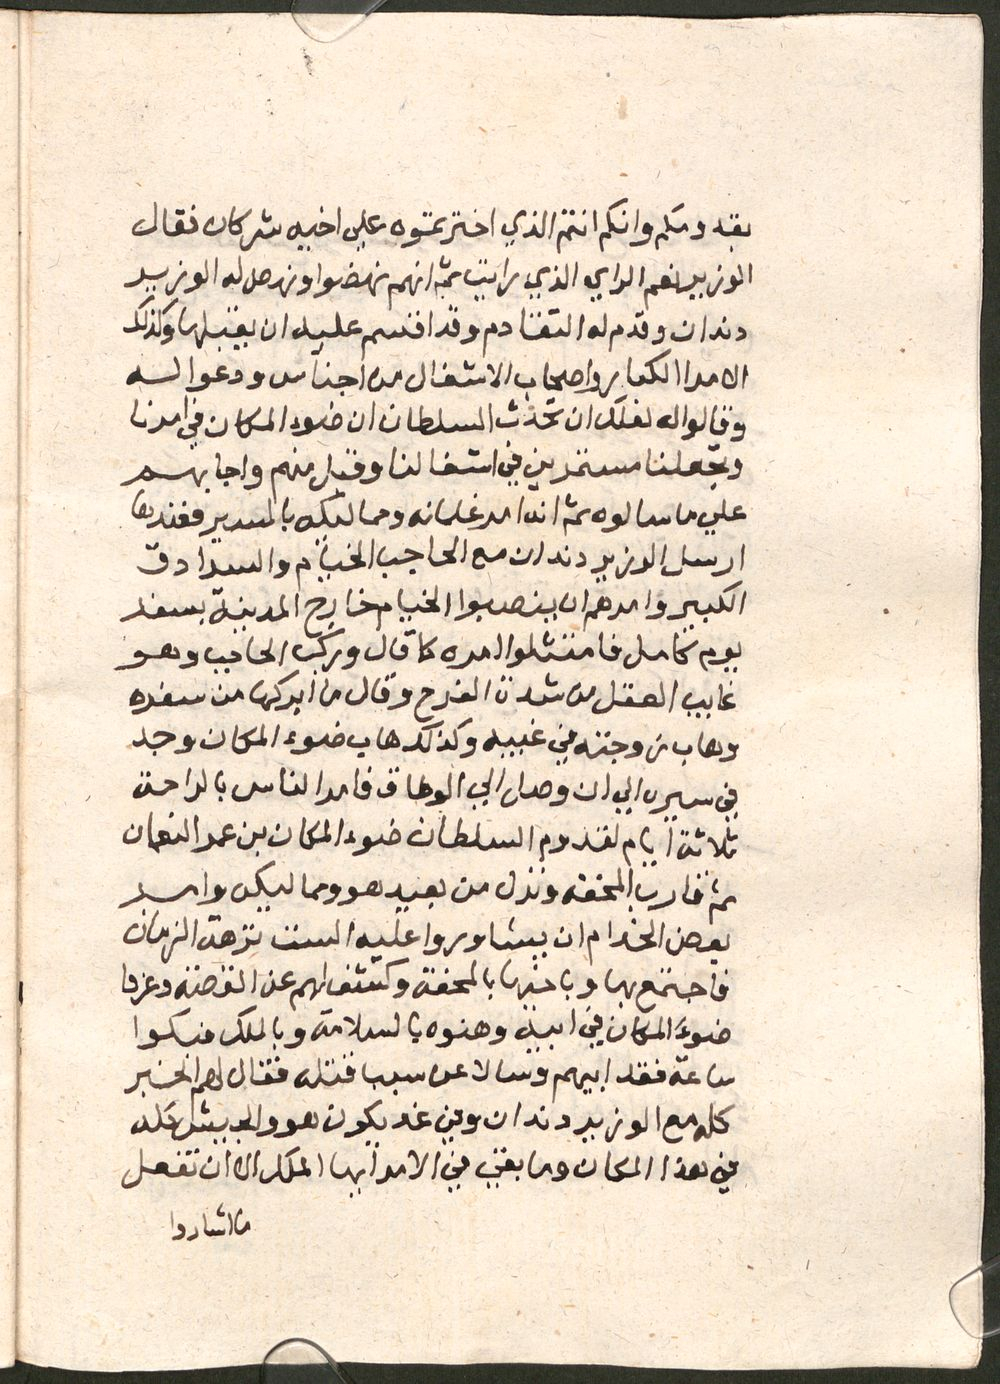 بقدومكم وانكم انتم الذي اخترتموه علي اخيه شركان فقال
الوزير نعم الراي الذي رايت ثم انهم نهضوا ونهض له الوزير
دندان وقدم له التقادم وقد اقسم عليه ان يقبلها وكذلك
الامرا الكبار واصحاب الاشغال من اجناس ودعوا له
وقالوا له لعلك ان تحدث السلطان ان ضوء المكان في امرنا
وتجعلنا مستمرين في اشغالنا وقبل منهم واجابهم
علي ما سالوه ثم انه امر غلمانه ومماليكه بالمسير فعندها
ارسل الوزير دندان مع الحاجب الخيام والسرادق
الكبير وامرهم ان ينصبوا الخيام خارج المدينة بسفر
يوم كامل فامتثلوا امره كما قال وركب الحاجب وهو
غايب العقل من شدة الفرح وقال ما ابركها من سفره
وهاب زوجته في غيبه وكذلك هاب ضوء المكان وجد
في سيره الي ان وصل الي الوطاق فامر الناس بالراحة
ثلاثة ايام لقدوم السلطان ضوء المكان بن عمر النعمان
ثم قارب المحفه ونزل من بعيد هو ومماليكه وامر
بعض الخدام ان يشاوروا عليه الست نزهة الزمان
فاجتمع بها وباخيها بالمحفة وكشف لهم عن القصة وعزوا
ضوء المكان في ابيه وهنوه بالسلامة وبالملك فبكوا
ساعة فقد ابيهم وسالا عن سبب قتله فقال لهم الخبر
كله مع الوزير دندان وفي غد يكون هو والجيش كله
في هذا المكان وما بقي في الامر ايها الملك الا ان تفعل
ما اشاروا